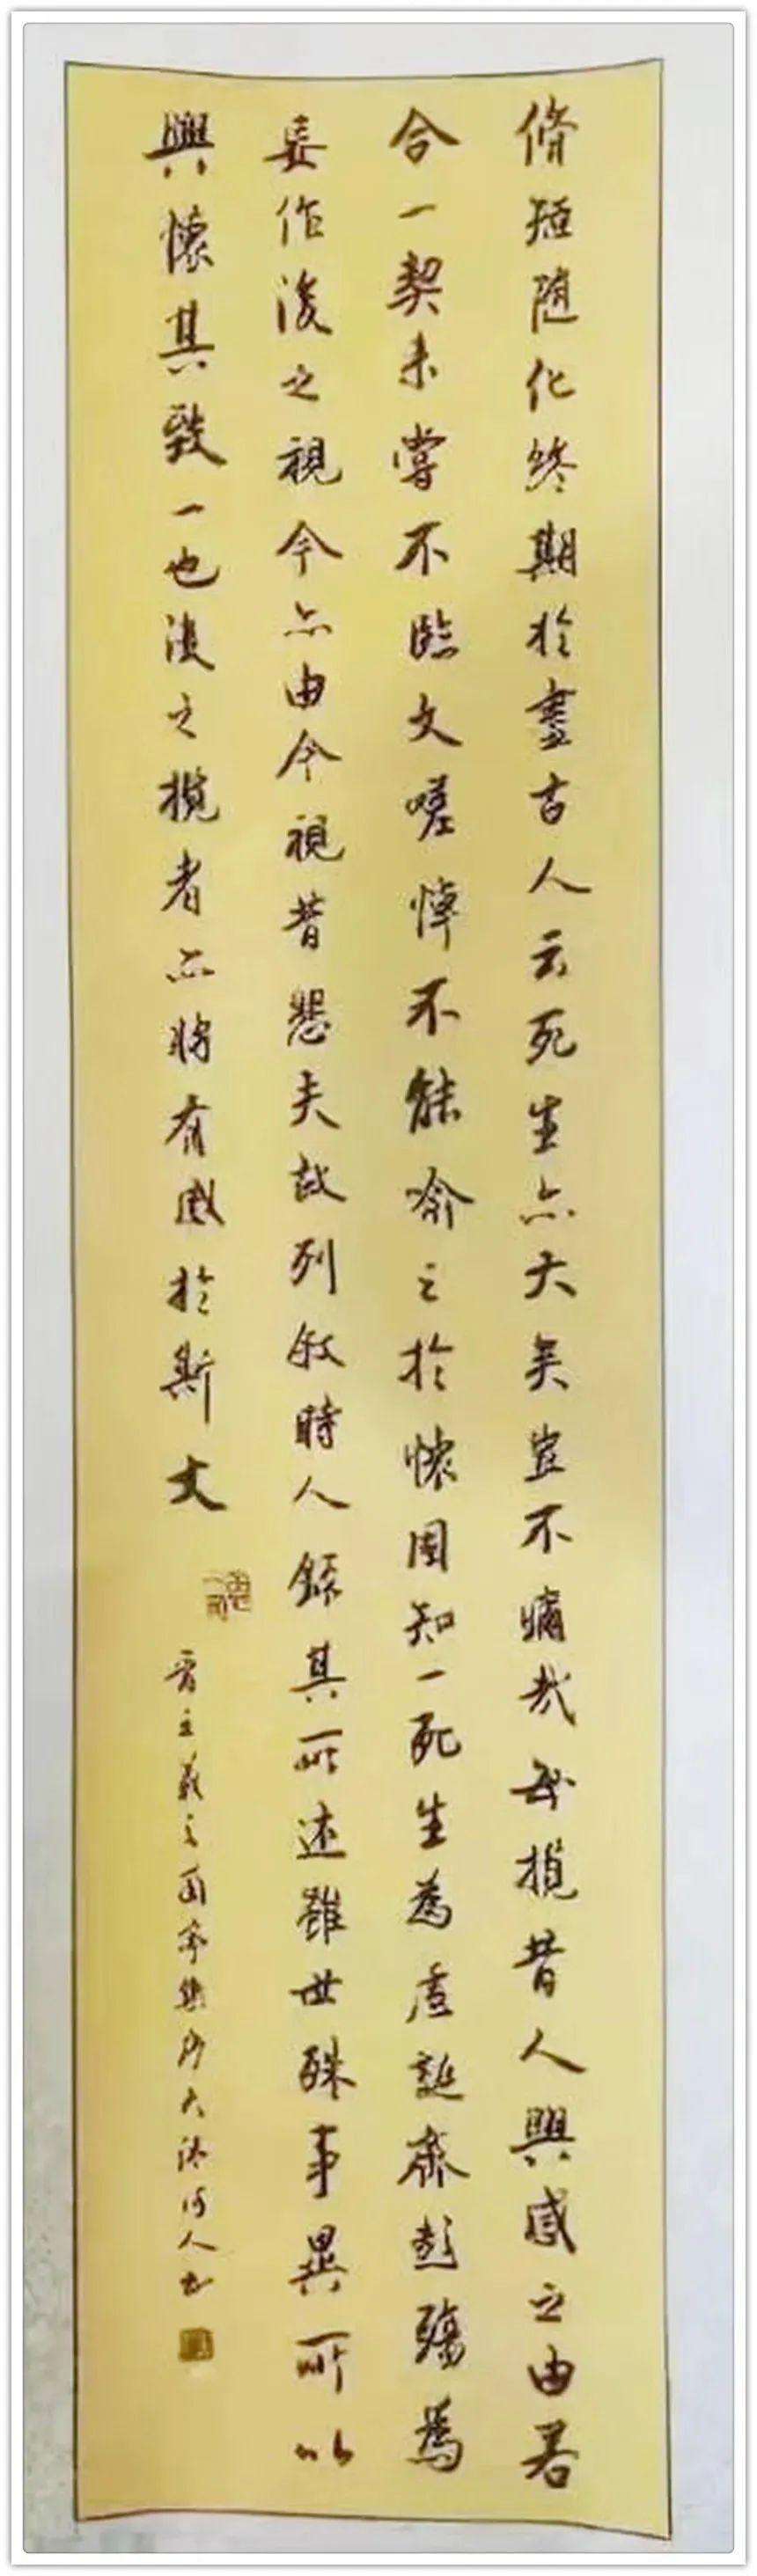 脩短随化終期於盡古人云死生亦大矣豈不痛哉每攬昔人興感之由若
合一契未嘗不臨文嗟悼不能喻之於懷固知一死生為虛誕齊彭殤為
妄作後之視今亦由今視昔悲夫故列敘時人錄其所述雖世殊事異所以
興懷其致一也後之攬者亦將有感於斯文
晉王羲之蘭亭集序大湖人書